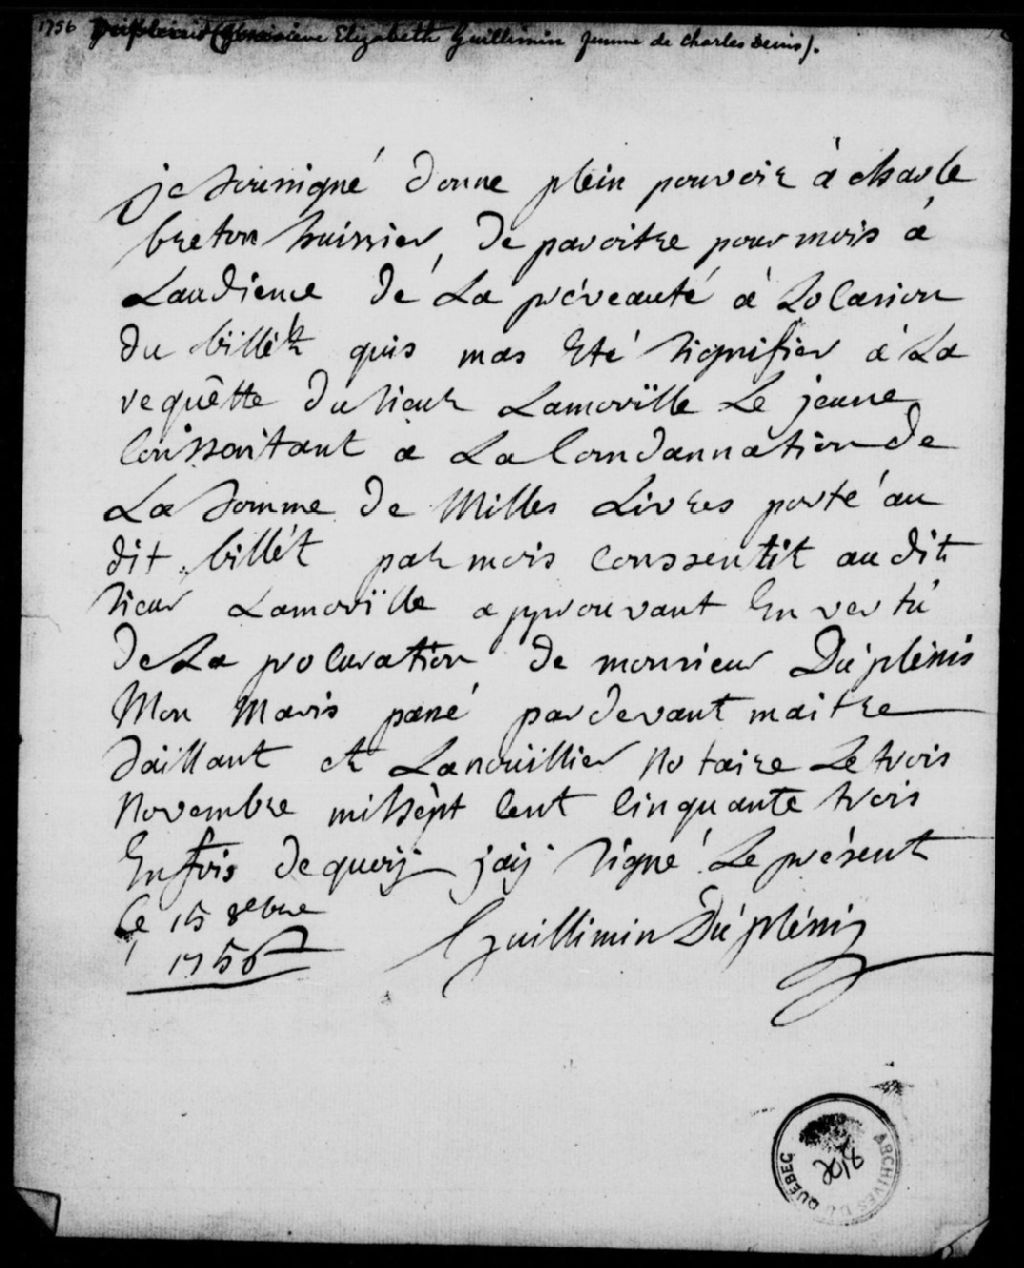 1756 Duplenis (Geneviève Elizabeth Guillimin femme de Charles Denis).
je soussigné donne plein pouvoir à charle
breton huissier, de paroitre pour mois à
Laudience dé La préveauté à Locasion
du billét quis mas Eté signifier à La
requêtte du sieur Lamorïlle Le jeune
Conssaitant à La Condannation de
La somme de Milles Livres porté au
dit billét par mois conssentit au dit
sieur Lamorïlle approuvant En vertü
de La procuration de monsieur Duplénis
Mon Maris passé pardevant maitre
Saillant et Lanouillier Notaire Le trois
Novembre milsept cent cinquante trois
En fois de quoiy jaiy signé Le présent
Ce 15 8ebre
1756
Guillimin Duplénis
ARCHIVES DU QUEBEC